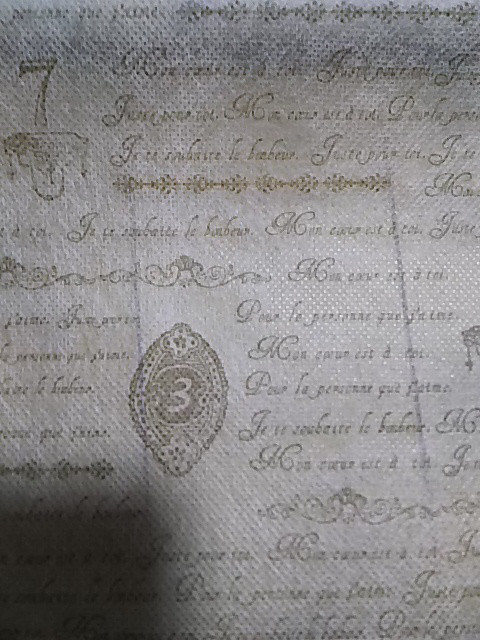 personne que j'aime.
7
Mon cœur est à toi. Juste pour toi. Ju
Juste pour toi. Mon cœur est à toi. Pour la pers
Je te souhaite le bonheur. Juste pour toi. Je te
Mon
à toi. Je te souhaite le bonheur. Mon cœur est à toi. Juste
Mon cœur est à toi.
j'aime. Juste pour toi Pour la personne que j'aime.
la personne que j'aime. Mon cœur est à toi.
le bonheur. 3 Pour la personne que j'aime.
que j'aime. Je te souhaite le bonheur. M
Mon cœur est à toi. Ju
souhaite le bonheur.
cœur est à toi. Juste pour toi. Mon cœur est à toi. Ju
souhaite le bonheur. Pour la personne que j'aime. Juste po
Je te souhaite le bonheur. Pour la pers